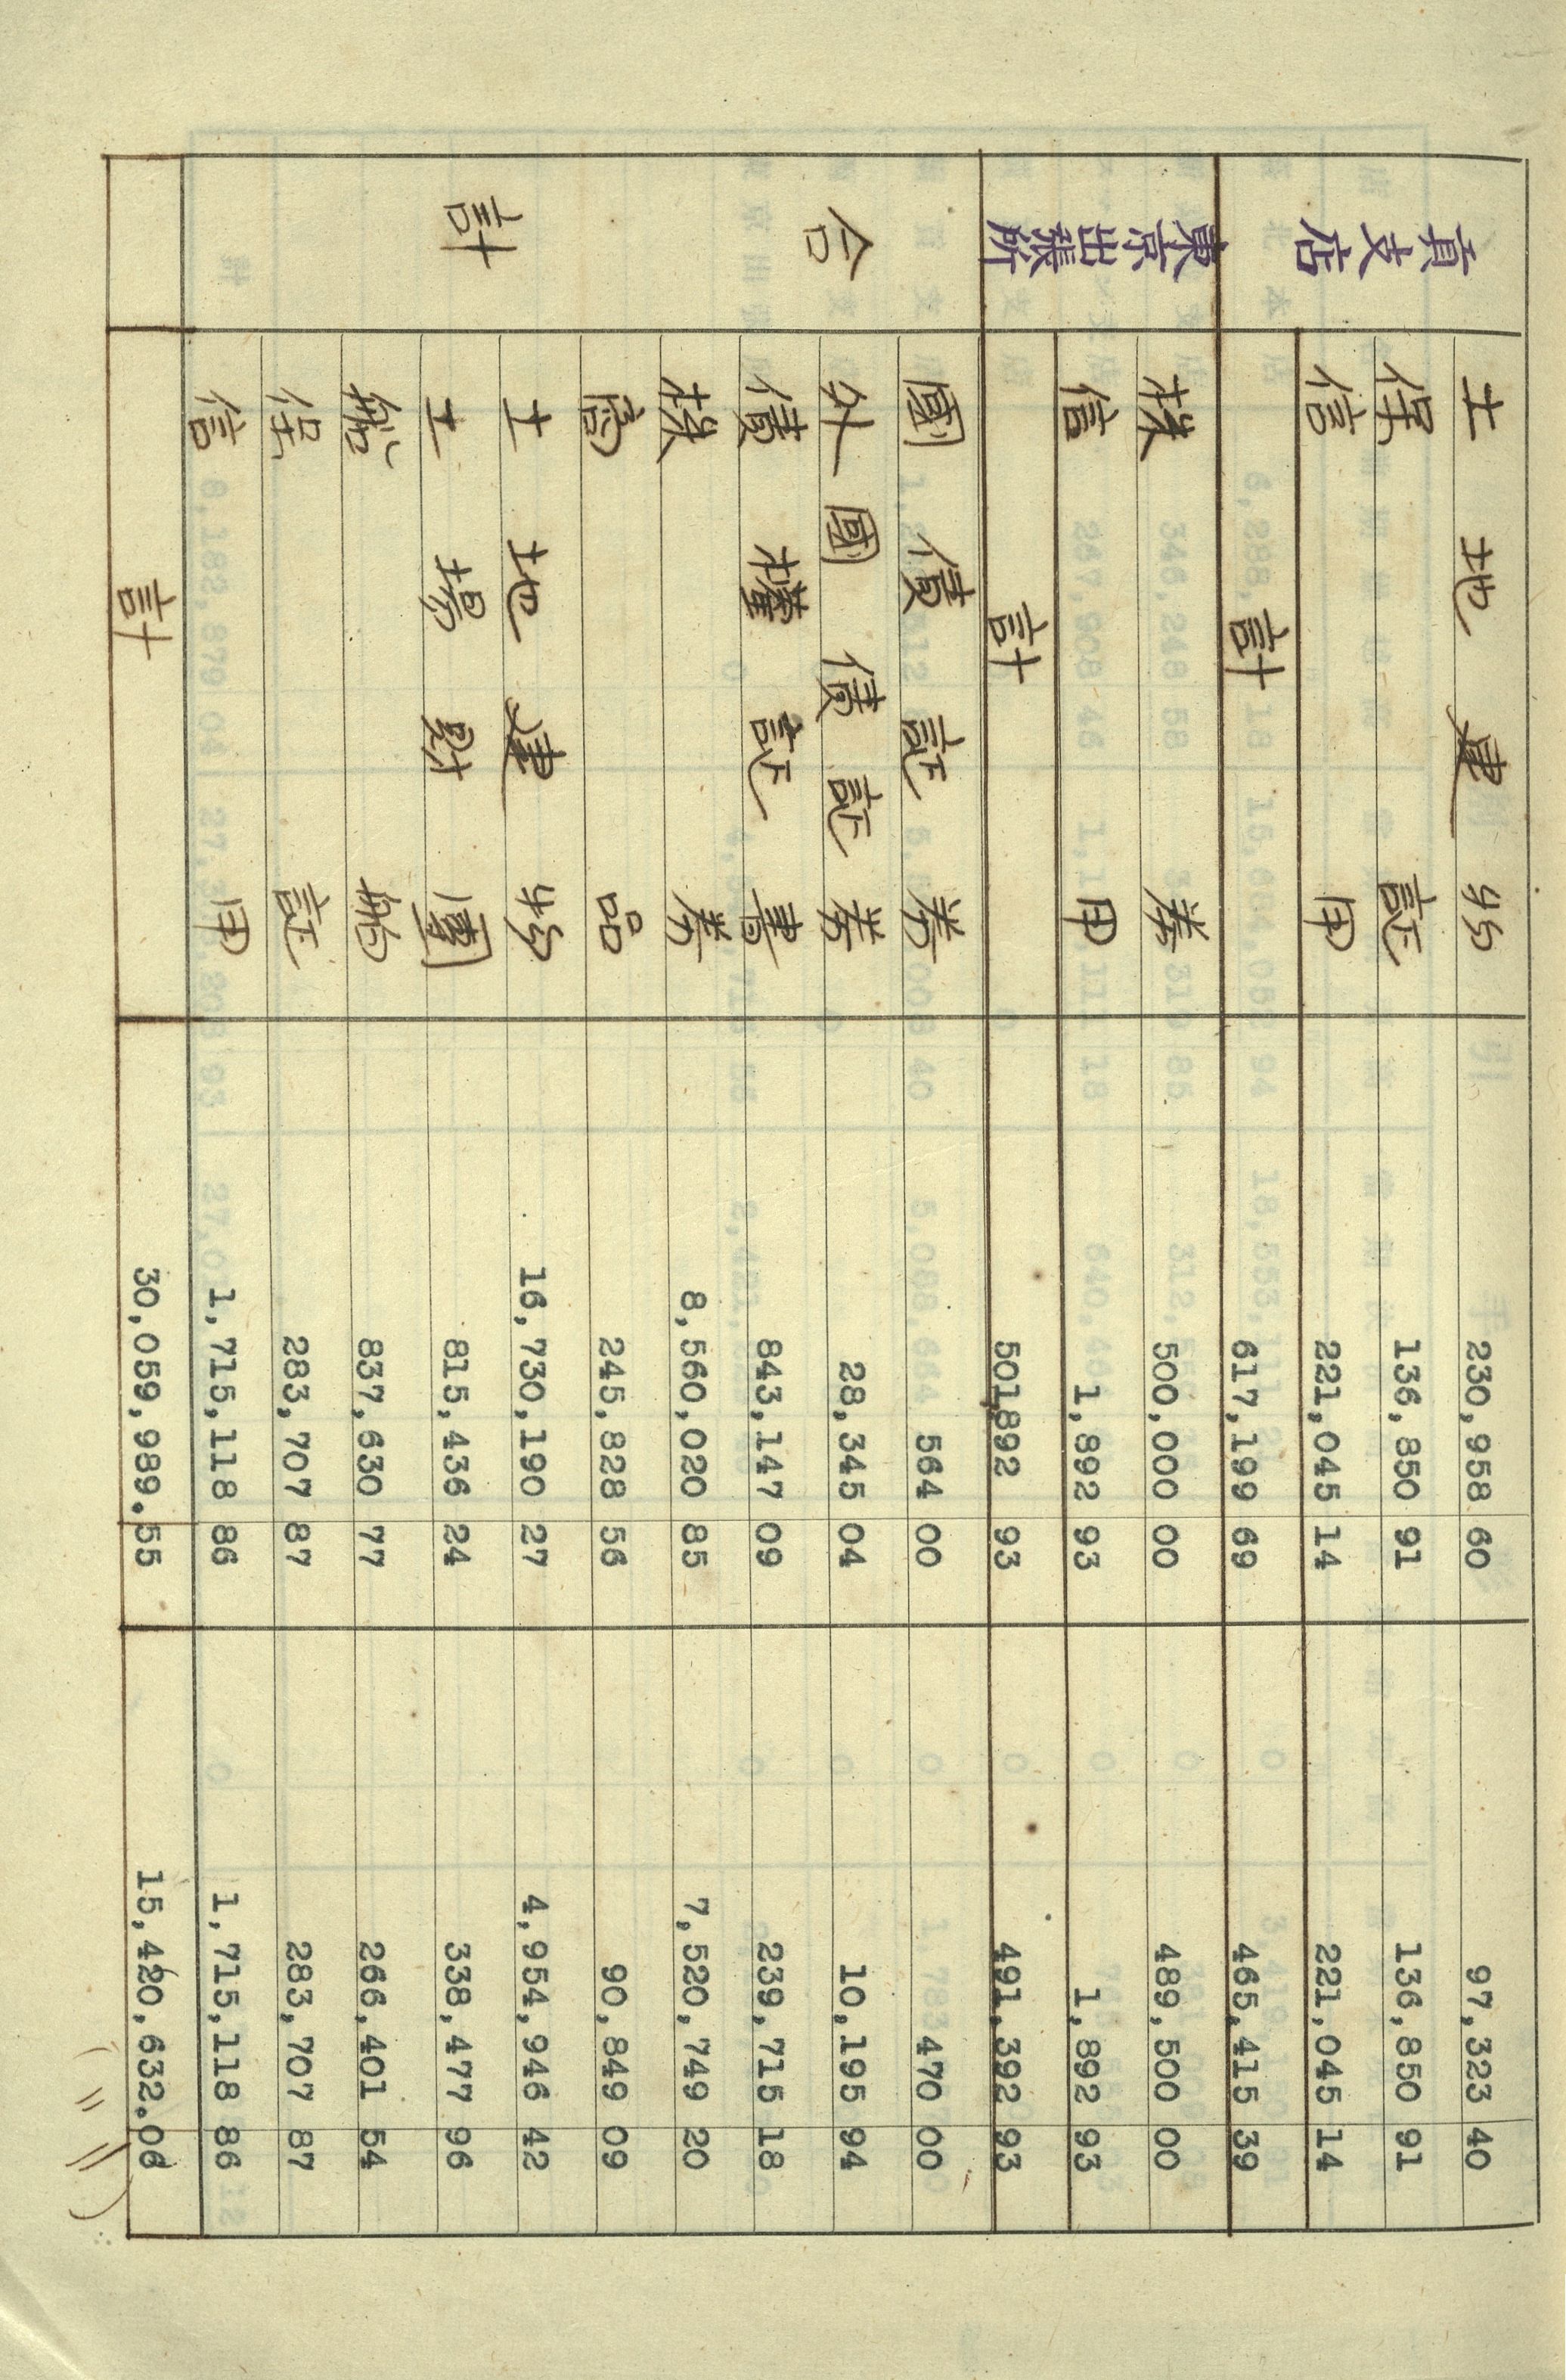 支店
土地建物 230,958 60 97,323 40
保証 136,850 91 136,850 91
信用 221,045 14 221,045 14
計 617,199 69 465,415 39
東京出張所
株券 500,000 00 489,500 00
信用 1,892 93 1,892 93
計 501,892 93 491,392 93
合計
國債証券 564 00 470 00
外國債証券 28,345 04 10,195 94
債權証書 843,147 09 239,715 18
株券 8,560,020 85 7,520,749 20
商品 245,828 56 90,849 09
土地建物 16,730,190 27 4,954,946 42
工場財團 815,436 24 338,477 96
船舶 837,630 77 266,401 54
保証 283,707 87 283,707 87
信用 1,715,118 86 1,715,118 86
計 30,059,989.55 15,420,632.06